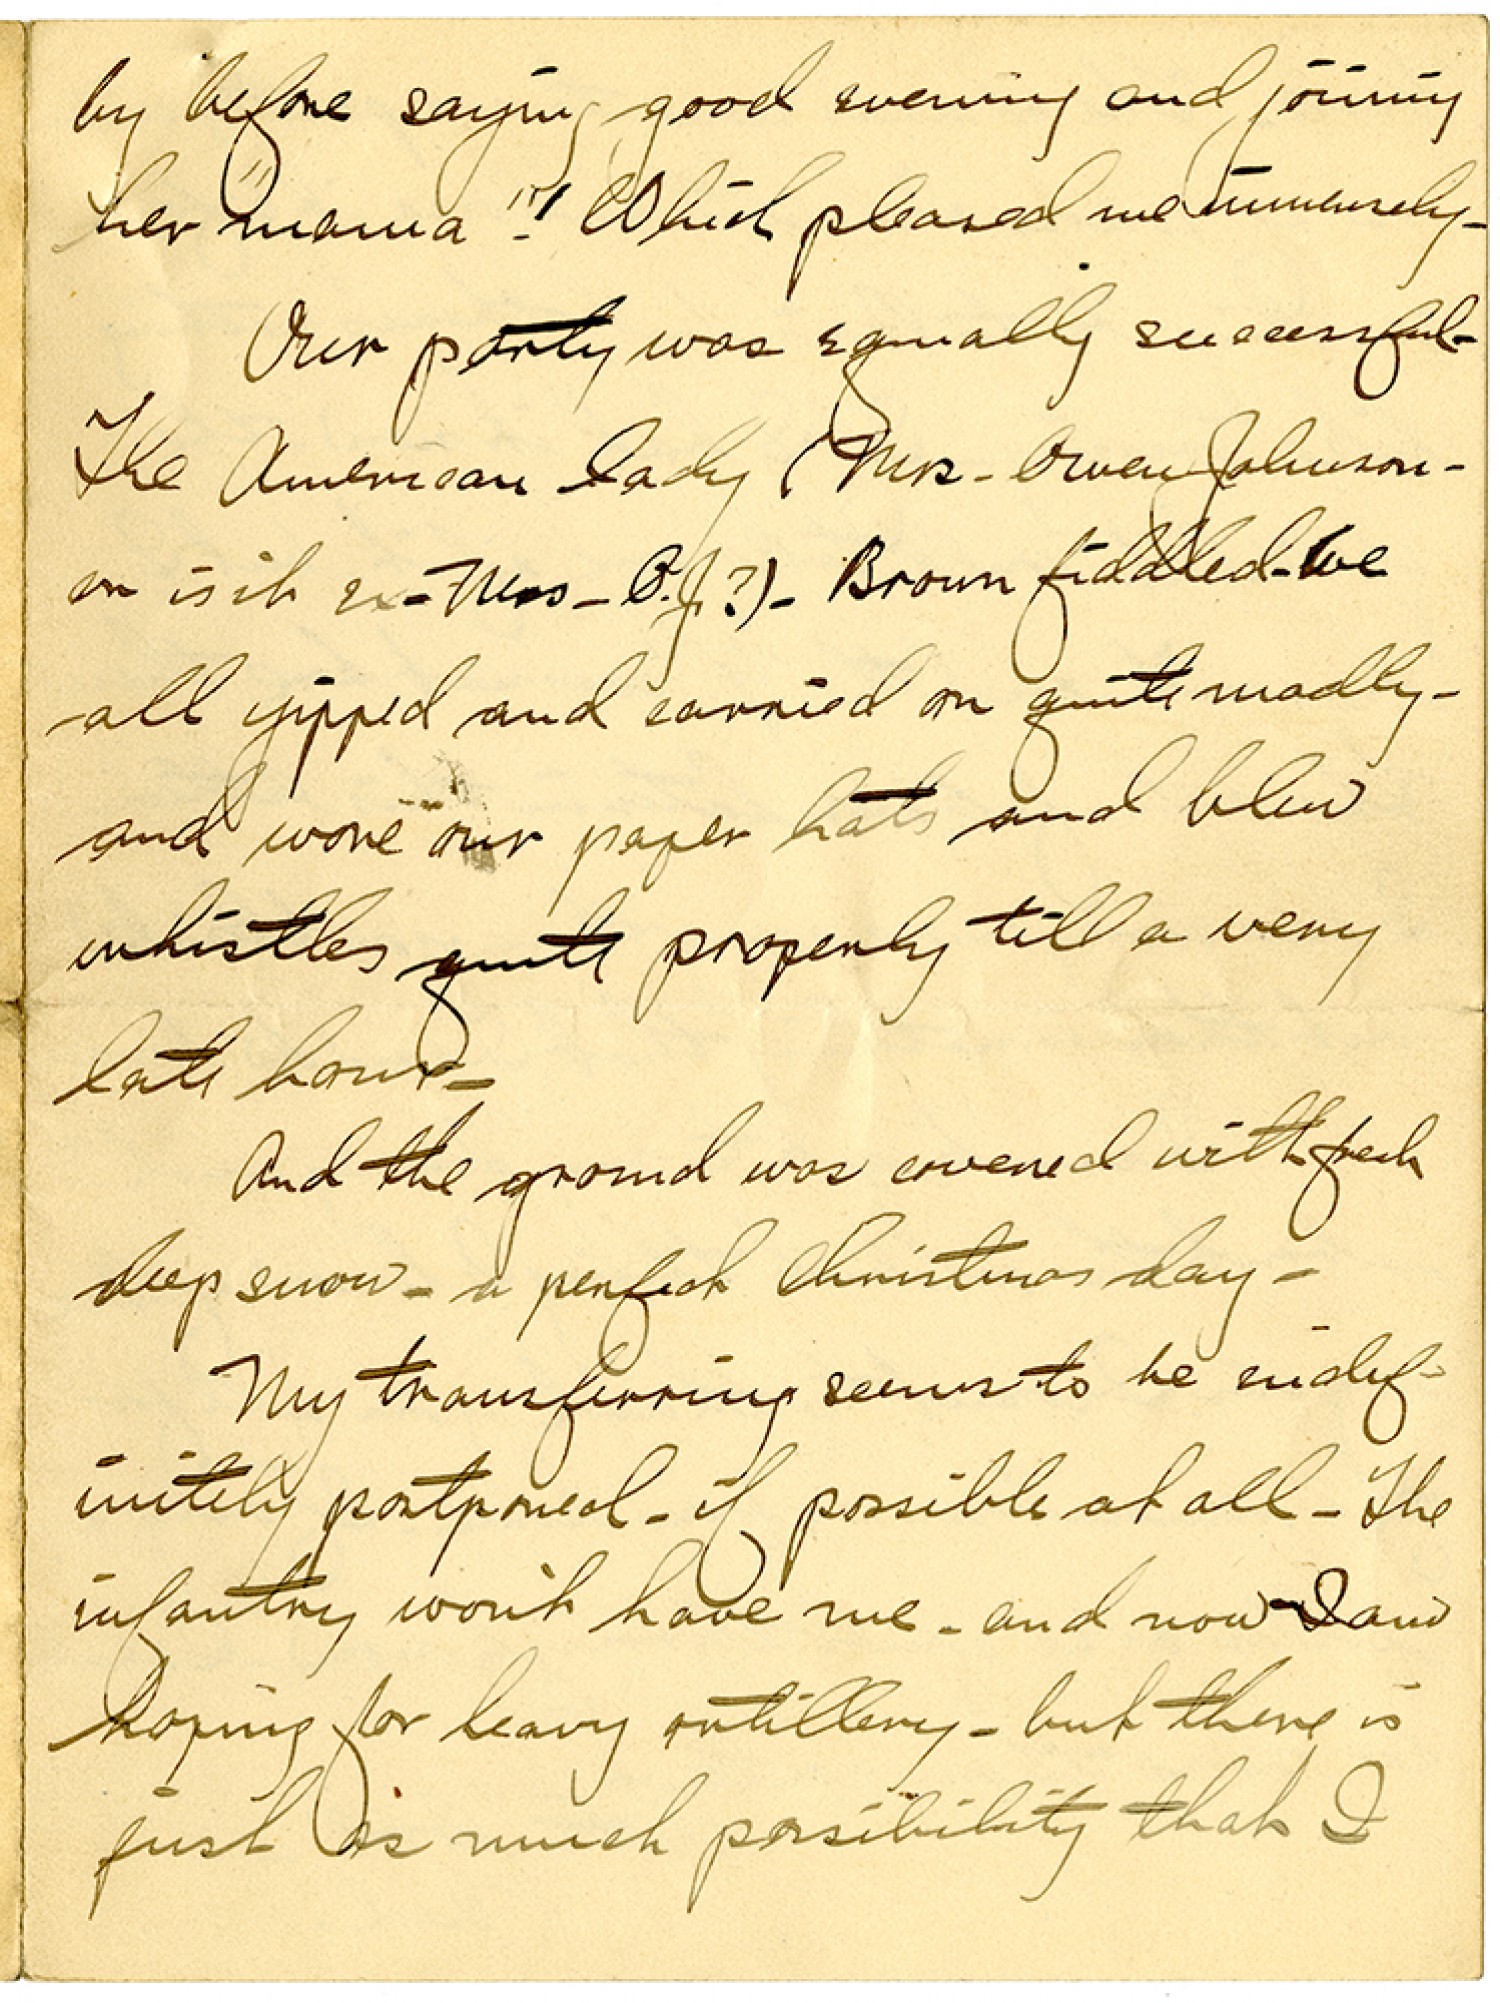 by before saying good evening and joining
her "mama"!! Which pleased me immensely-
Our party was equally successful-
The American lady (Mrs- Owen Johnson-
or is it ex-Mrs- O.J?)- Brown fiddled-We
all yipped and carried on quite madly-
and wore our paper hats and blew
whistles quite properly till a very
late hour-
And the ground was covered with fresh
deep snow- a perfect Christmas day-
My transferring seems to be indef-
initely postponed- if possible at all- The
infantry won't have me- and now I am
hoping for heavy artillery- but there is
just as much possibility that I